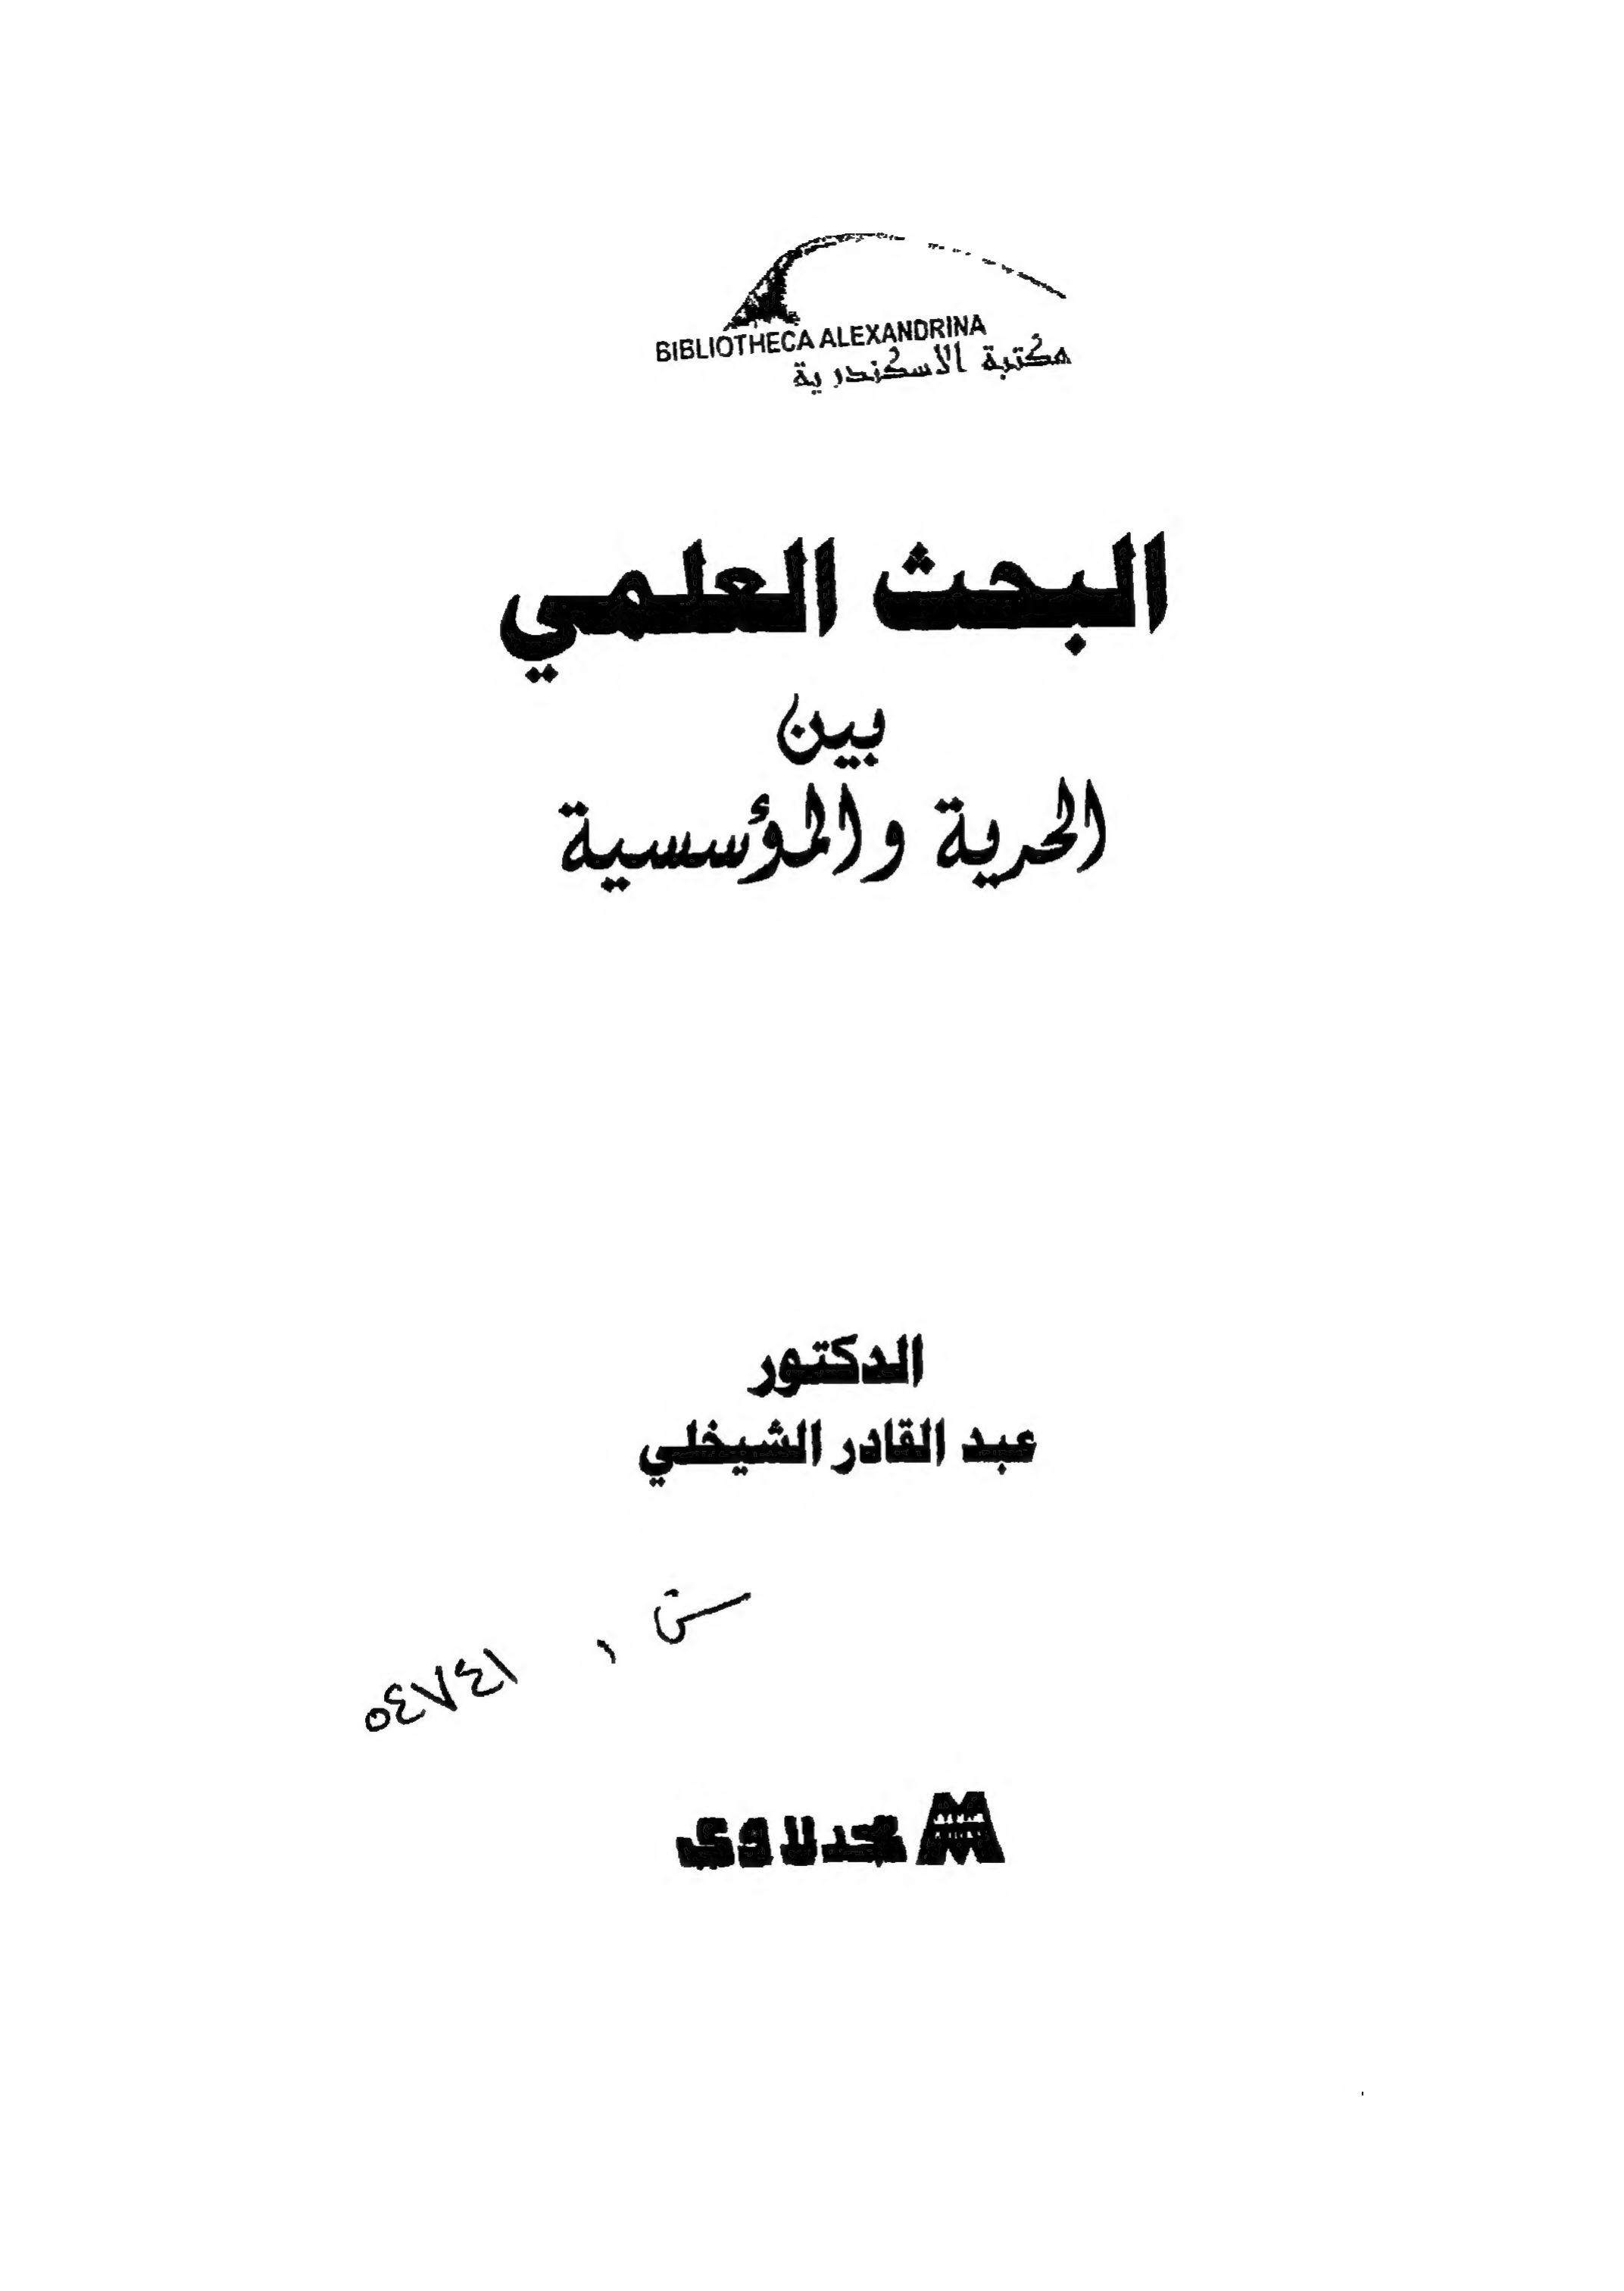 BIBLIOTHECA ALEXANDRINA
مكتبة الاسكندرية
البحث العلمي
بين
الحرية والمؤسسية
الدكتور
عبد القادر الشيخلي
٥٤٧٤١
مجدلاوي